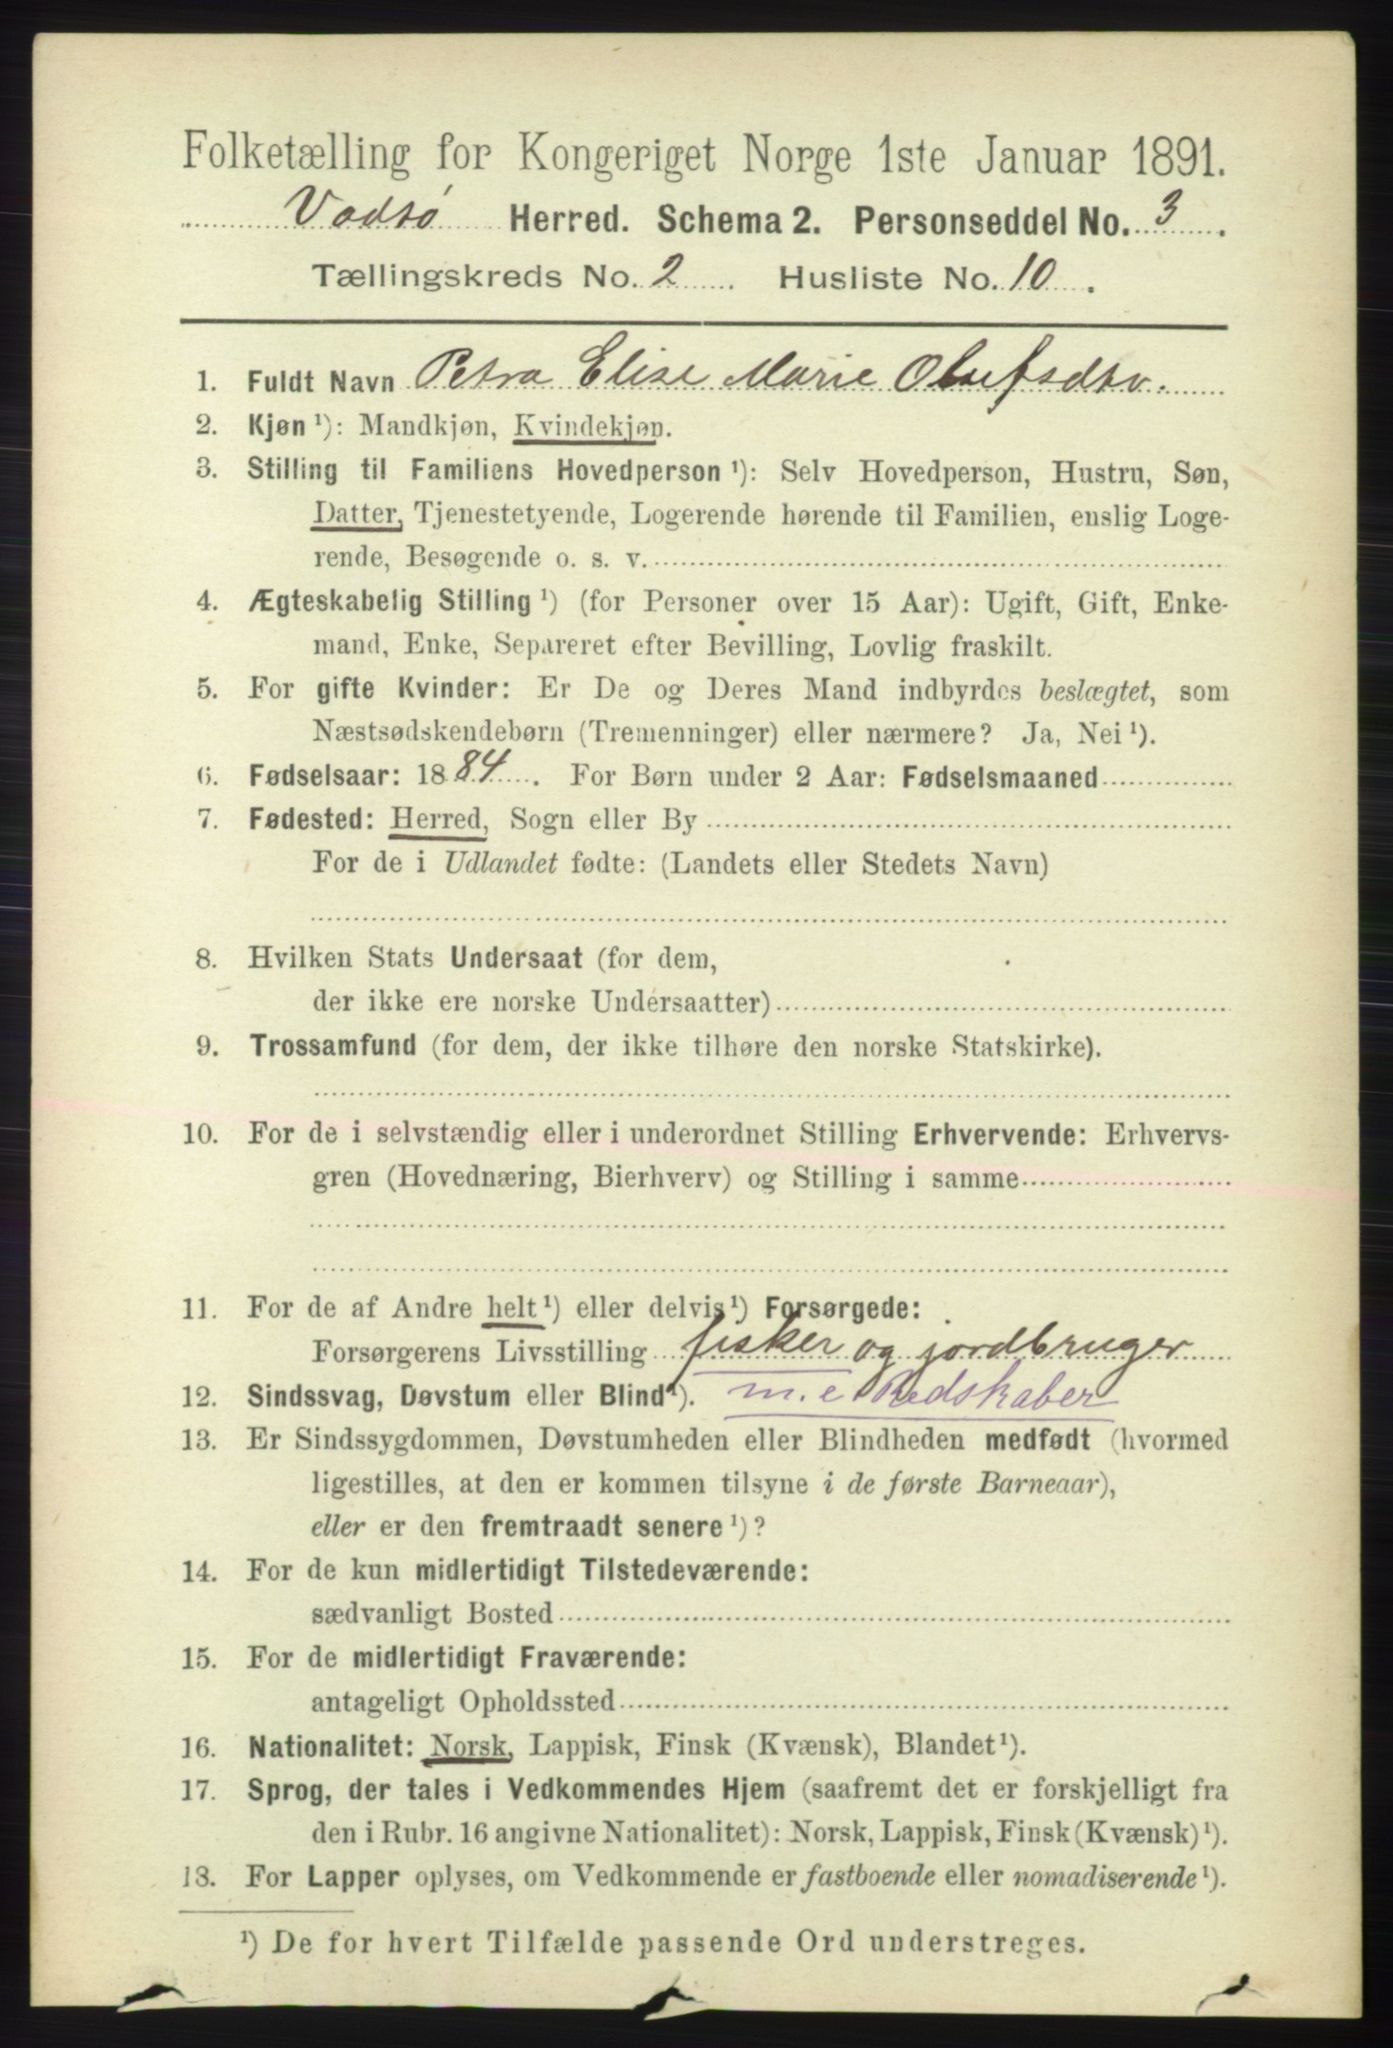 Folketælling for Kongeriget Norge 1ste Januar 1891.
Vadsø Herred. Schema 2. Personseddel No. 3.
Tællingskreds No. 2. Husliste No. 10.
1. Fuldt Navn Petra Elise Marie Olufsdtr.
2. Kjøn ¹): Mandkjøn, Kvindekjøn.
3. Stilling til Familiens Hovedperson ¹): Selv Hovedperson, Hustru, Søn,
Datter, Tjenestetyende, Logerende hørende til Familien, enslig Loge-
rende, Besøgende o. s. v.
4. Ægteskabelig Stilling ¹) (for Personer over 15 Aar): Ugift, Gift, Enke-
mand, Enke, Separeret efter Bevilling, Lovlig fraskilt.
5. For gifte Kvinder: Er De og Deres Mand indbyrdes beslægtet, som
Næstsødskendebørn (Tremenninger) eller nærmere? Ja, Nei ¹).
6. Fødselsaar: 1884. For Børn under 2 Aar: Fødselsmaaned
7. Fødested: Herred, Sogn eller By
For de i Udlandet fødte: (Landets eller Stedets Navn)
8. Hvilken Stats Undersaat (for dem,
der ikke ere norske Undersaatter)
9. Trossamfund (for dem, der ikke tilhøre den norske Statskirke).
10. For de i selvstændig eller i underordnet Stilling Erhvervende: Erhvervs-
gren (Hovednæring, Bierhverv) og Stilling i samme
11. For de af Andre helt ¹) eller delvis ¹) Forsørgede:
Forsørgerens Livsstilling fisker og jordbruger
12. Sindssvag, Døvstum eller Blind ¹). m. e. Redskaber
13. Er Sindssygdommen, Døvstumheden eller Blindheden medfødt (hvormed
ligestilles, at den er kommen tilsyne i de første Barneaar),
eller er den fremtraadt senere ¹)?
14. For de kun midlertidigt Tilstedeværende:
sædvanligt Bosted
15. For de midlertidigt Fraværende:
antageligt Opholdssted
16. Nationalitet: Norsk, Lappisk, Finsk (Kvænsk), Blandet ¹).
17. Sprog, der tales i Vedkommendes Hjem (saafremt det er forskjelligt fra
den i Rubr. 16 angivne Nationalitet): Norsk, Lappisk, Finsk (Kvænsk) ¹).
18. For Lapper oplyses, om Vedkommende er fastboende eller nomadiserende ¹).
¹) De for hvert Tilfælde passende Ord understreges.